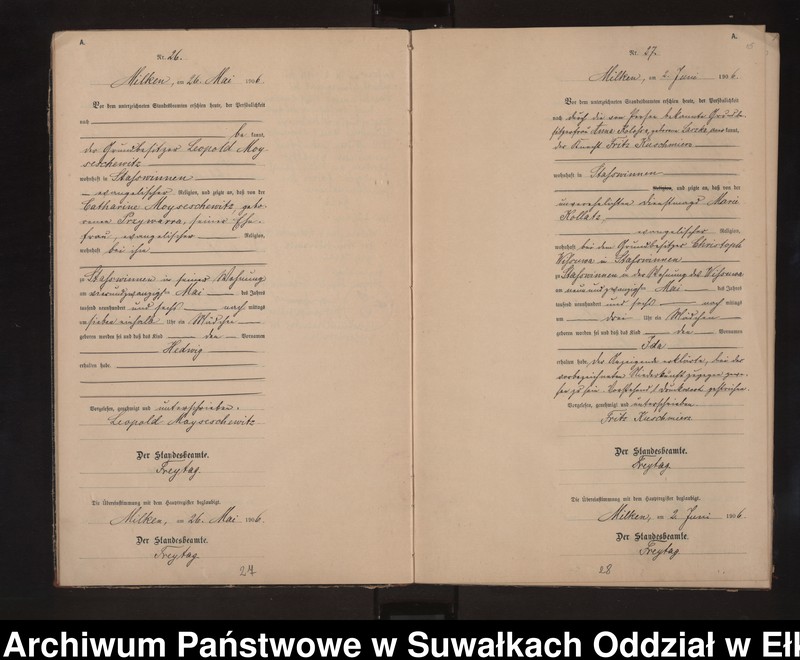 A.
Nr. 26.
Milken, am 26. Mai 1906.
Vor dem unterzeichneten Standesbeamten erschien heute, der Persönlichkeit
nach
be kannt,
der Grundbesitzer Leopold Moy-
seschewitz
wohnhaft in Staßwinnen
evangelischer Religion, und zeigte an, daß von der
Catharine Moyseschewitz, gebo-
renen Przywarra, seiner Ehe-
frau, evangelischer Religion,
wohnhaft bei ihm
zu Staßwinnen in seiner Wohnung
am vierundzwanzigsten Mai des Jahres
tausend neunhundert und sechs nach mittags
um sieben einhalb Uhr ein Mädchen
geboren worden sei und daß das Kind den Vornamen
Hedwig
erhalten habe.
Vorgelesen, genehmigt und unterschrieben.
Leopold Moyseschewitz
Der Standesbeamte.
Freytag
Die Übereinstimmung mit dem Hauptregister beglaubigt.
Milken, am 26. Mai 1906.
Der Standesbeamte.
Freytag
24
A.
Nr. 27.
Milken, am 2. Juni 1906.
Vor dem unterzeichneten Standesbeamten erschien heute, der Persönlichkeit
nach durch die von Person bekannte Grundbe-
sitzerfrau Anna geborene aner kannt,
der Knecht Fritz Kuschmierz
wohnhaft in Staßwinnen
Religion, und zeigte an, daß von der
unverehelichten Dienstmagd Marie
Kollatz
evangelischer Religion,
wohnhaft bei dem Grundbesitzer Christoph
in Staßwinnen
zu Staßwinnen in der Wohnung des
am neunundzwanzigsten Mai des Jahres
tausend neunhundert und sechs nach mittags
um drei Uhr ein Mädchen
geboren worden sei und daß das Kind den Vornamen
Ida
erhalten habe. Der Anzeigende erklärte, bei der
vorbezeichneten Niederkunft zugegen gewe-
sen zu sein. Vorstehend Druckwort gestrichen.
Vorgelesen, genehmigt und unterschrieben
Fritz Kuschmierz
Der Standesbeamte.
Freytag
Die Übereinstimmung mit dem Hauptregister beglaubigt.
Milken, am 2. Juni 1906.
Der Standesbeamte.
Freytag
28
Archiwum Państwowe w Suwałkach Oddział w Ełk